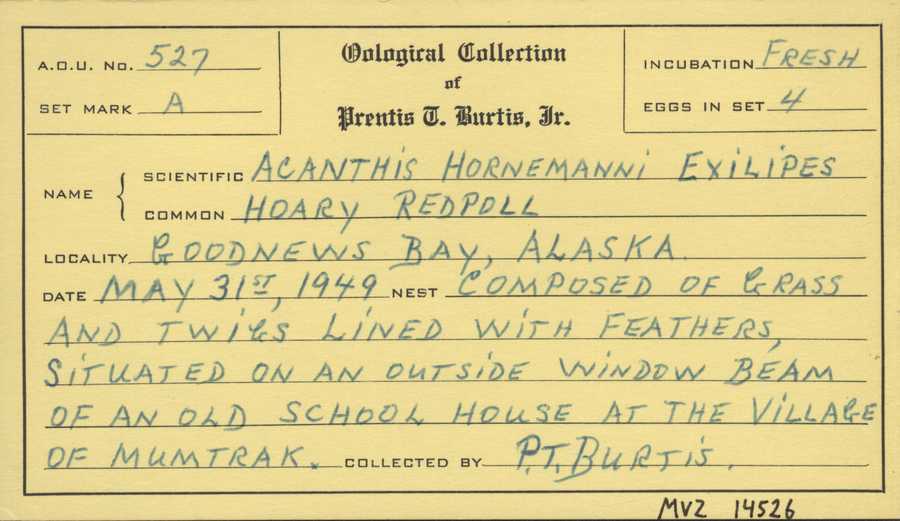 A.O.U. No. 527
SET MARK A
Oological Collection
of
Prentis T. Burtis, Jr.
INCUBATION FRESH
EGGS IN SET 4
NAME { SCIENTIFIC ACANTHIS HORNEMANNI EXILIPES
COMMON HOARY REDPOLL
LOCALITY GOODNEWS BAY, ALASKA.
DATE MAY 31ST, 1949 NEST COMPOSED OF GRASS
AND TWIGS LINED WITH FEATHERS,
SITUATED ON AN OUTSIDE WINDOW BEAM
OF AN OLD SCHOOL HOUSE AT THE VILLAGE
OF MUMTRAK. COLLECTED BY P.T. BURTIS.
MVZ 14526